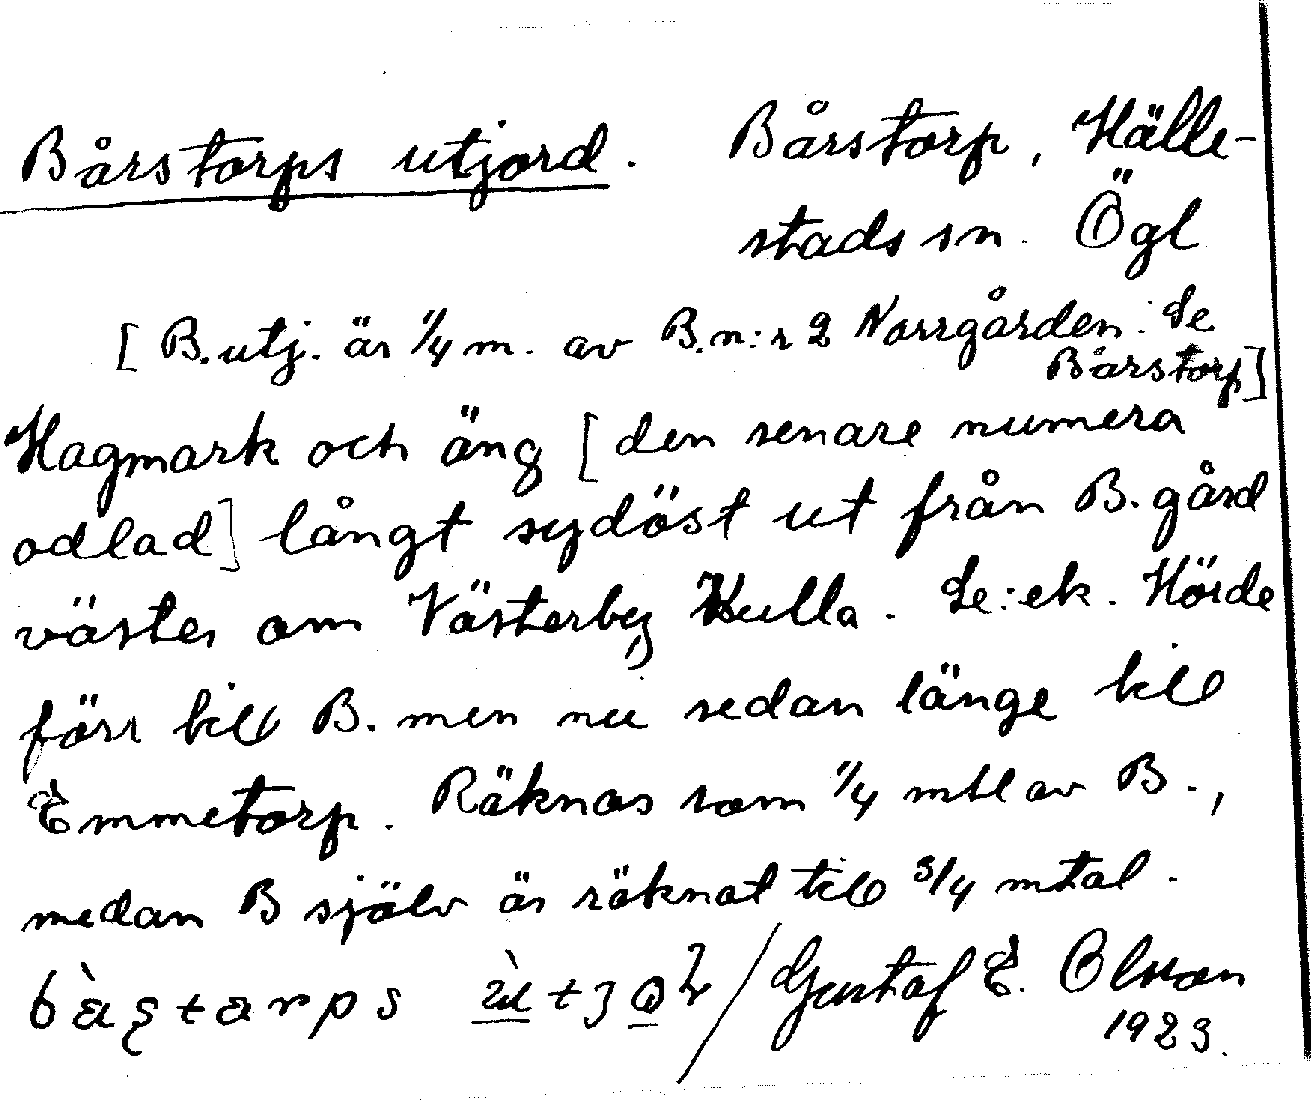 Bårstorps utjord. Bårstorp, Hälle-
stads sn. Ögl
[B. utj. är 1/4 m. av B. n:r 2 Norrgården. Se
Bårstorp]
Hagmark och äng [den senare numera
odlad] långt sydöst ut från B. gård
väster om Västerby Kulla. Se: ek. Hörde
förr till B. men nu sedan länge till
Emmetorp. Räknas som 1/4 mtl av B.,
medan B själv är räknat till 3/4 mtal.
/ Gustaf E. Olsson
1923.